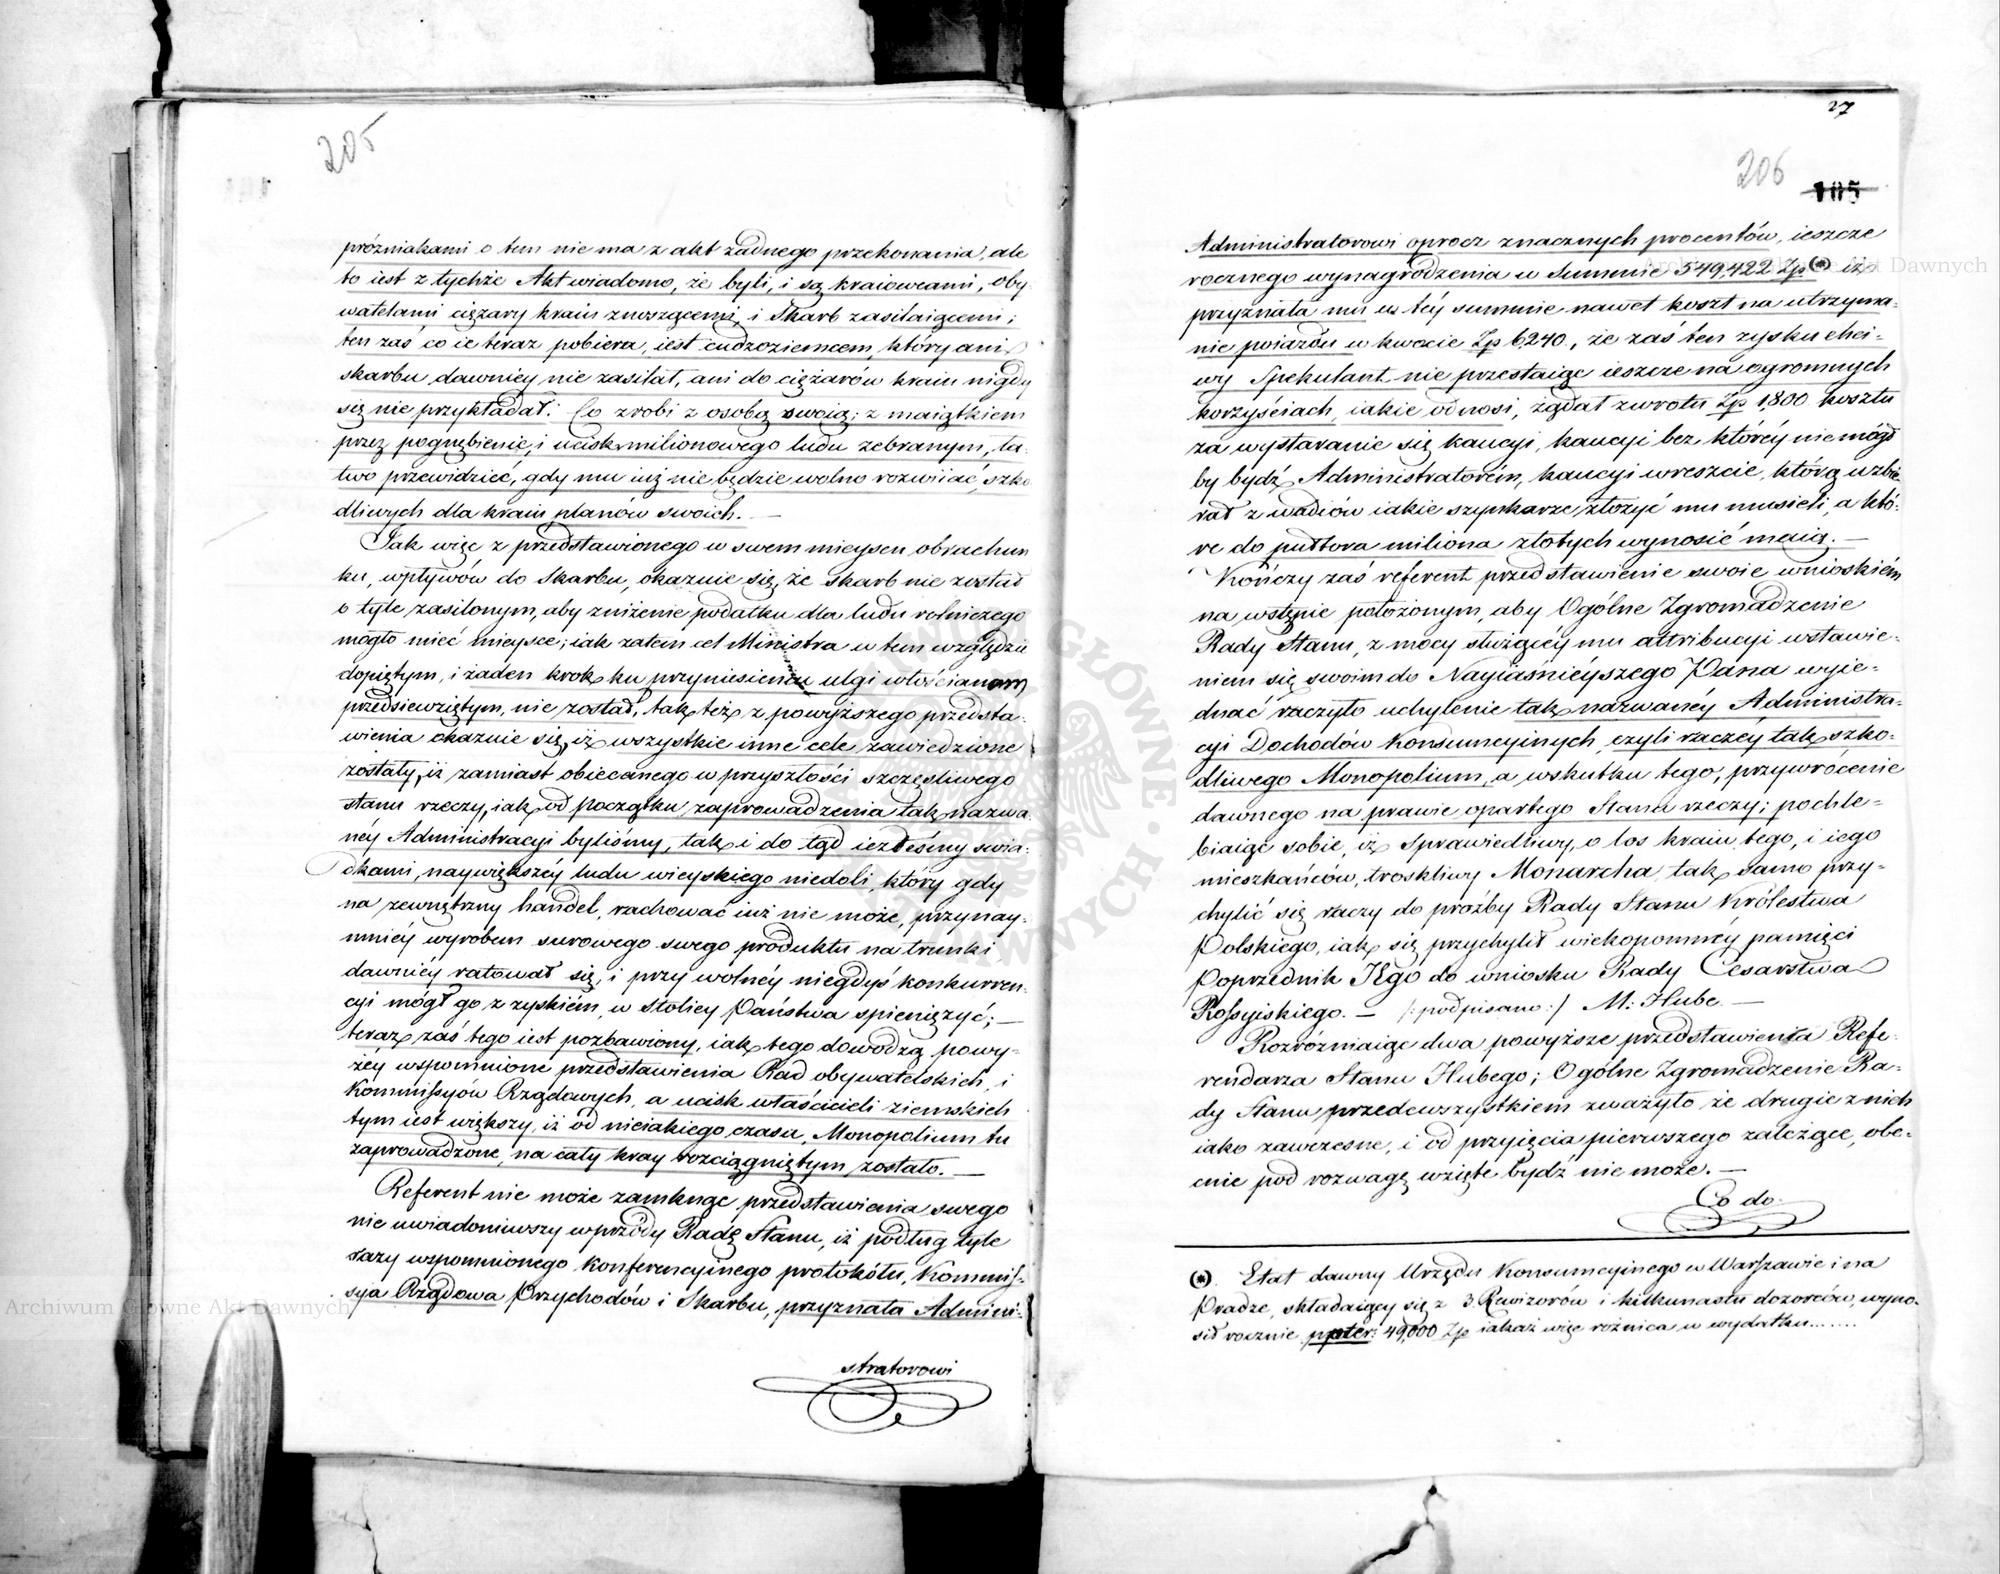 205
próżniakami o tem nie ma z akt żadnego przekonania, ale
to iest z tychże Akt wiadomo, że byli, i są kraiowcami, oby-
watelami ciężary kraiu znoszącemi, i Skarb zasilaiącemi;
ten zaś co ie teraz pobiera, iest cudzoziemcem, który ani
skarbu dawniey nie zasilał, ani do ciężarów kraiu nigdy
się nie przykładał. Co zrobi z osobą swoią; z maiątkiem
przez pognębienie, i ucisk milionowego ludu zebranym, ła-
two przewidzieć, gdy mu iuż nie będzie wolno rozwiiać, szko
dliwych dla kraiu planów swoich. —
Jak więc z przedstawionego w swem mieyscu obrachun
ku, wpływów do Skarbu, okazuie się, że skarb nie został
o tyle zasilonym, aby zniżenie podatku dla ludu rolniczego
mogło mieć mieysce; iak zatem cel Ministra w tem względzie
dopiętym, i żaden krok ku przyniesieniu ulgi włościanom
przedsiewziętym, nie został, tak też z powyższego przedsta-
wienia okazuie się, iż wszystkie inne cele zawiedzione
zostały, iż zamiast obiecanego w przyszłości szczęśliwego
stanu rzeczy, iak od początku zaprowadzenia tak nazwa
néy Administracyi byliśmy, tak i do tąd iesteśmy świa-
dkami, naywiększéy ludu wieyskiego niedoli, który gdy
na zewnętrzny handel, rachować iuż nie może, przynay-
mniéy wyrobem surowego swego produktu na trunki
dawniéy ratował się, i przy wolnéy niegdyś konkurren-
cyi mógł go z zyskiém, w stolicy Państwa spieniężyć; —
teraz zaś tego iest pozbawiony, iak tego dowodzą powy-
żéy wspomnione przedstawienia Rad obywatelskich, i
Kommissyów Rządowych, a ucisk właścicieli ziemskich
tym iest większy, iż od nieiakiego czasu, Monopolium tu
zaprowadzone, na cały kray rozciągniętym zostało. —
Referent nie może zamknąć przedstawienia swego
nie uwiadomiwszy wprzódy Radę Stanu, iż podług tyle
razy wspomnionego konferencyinego protokółu, Kommis-
syia Rządowa Przychodów i Skarbu, przyznała Admini-
stratorowi
27
206
105
Administratorowi oprócz znacznych procentów, ieszcze
rocznego wynagrodzenia w Summie 549,422 Zp (*) iż
przyznała mu w téy summie nawet koszt na utrzyma-
nie poiazdu w kwocie Zp 6240., że zaś ten zysku chci-
wy Spekulant nie przestaiąc ieszcze na ogromnych
korzyściach, iakie odnosi, żądał zwrotu Zp 1,800 kosztu
za wystaranie się kaucyi, kaucyi bez któréy nie mógł
by bydź Administratorém, kaucyi wreszcie, którą uzbie
rał z wadiów iakie szynkarze, złożyć mu musieli, a któ-
re do półtora miliona złotych wynosić maią. —
Kończy zaś referent przedstawienie swoie wnioskiém
na wstępie położonym, aby Ogólne Zgromadzenie
Rady Stanu, z mocy służącéy mu attribucyi wstawie-
niem się swoim do Nayiaśnieyszego Pana wyie-
dnać raczyło uchylenie tak nazwanéy Administra-
cyi Dochodów Konsumcyinych, czyli raczéy tak szko-
dliwego Monopolium, a wskutku tego, przywrócenie
dawnego na prawie opartego Stanu rzeczy; pochle-
biaiąc sobie, iż Sprawiedliwy, o los kraiu tego, i iego
mieszkańców, troskliwy Monarcha, tak samo przy-
chylić się raczy do proźby Rady Stanu Królestwa
Polskiego, iak się przychylił wiekopomnéy pamięci
Poprzednik JEgo do wniosku Rady Cesarstwa
Rossyiskiego. — /:podpisano:/ M: Hube. —
Rozróżniaiąc dwa powyższe przedstawienia Refe-
rendarza Stanu Hubego; Ogólne Zgromadzenie Ra-
dy Stanu, przedewszystkiem zważyło że drugie z nich
iako zawczesne, i od przyięcia pierwszego zależące, obe-
cnie pod rozwagę wzięte bydź nie może. —
Co do
(*). Etat dawny Urzędu Konsumcyinego w Warszawie i na
Pradze, składaiący się z 3. Rewizorów i kilkunastu dozorców, wyno-
sił rocznie ppter: 49,000 Zp iakaż więc rożnica w wydatku.......
Archiwum Główne Akt Dawnych
Archiwum Główne Akt Dawnych